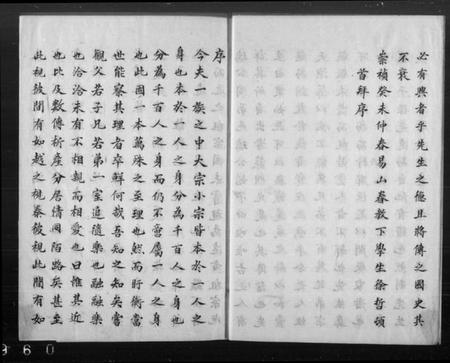 必有興者乎先生之德且將傳之國史其
不衰
崇禎癸未仲春易山眷教下學生徐哲頓
首拜序
序
今夫一族之中大宗小宗皆本於一人之
身也本於一人之身分為千百人之身也
分為千百人之身而仍不啻屬一人之身
也此固一本萬殊之至理也然而盱衡當
世能察其理者卒鮮何哉吾知之知矣嘗
觀父若子兄若弟一室追隨樂也融融樂
也洽洽未有不相親而相愛也曰惟其近
也比及數傳析產分居情同陌路矣甚至
此視彼間有如越之視秦彼視此間有如
960